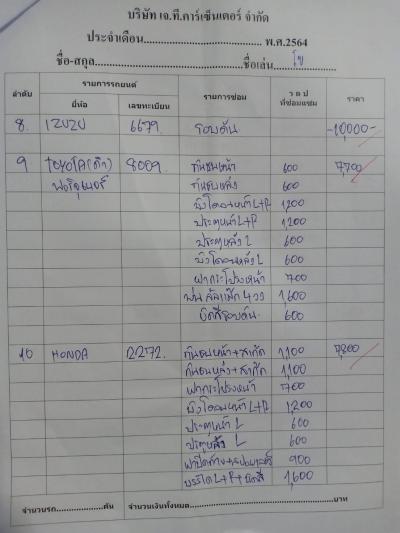 บริษัท เจ.ที.คาร์เซ็นเตอร์ จำกัด
ประจำเดือน........................................ พ.ศ.2564
ชื่อ-สกุล........................................ชื่อเล่น.....โย.....
ลำดับ รายการรถยนต์ รายการซ่อม ว ด ป ที่ซ่อมแซม ราคา
ยี่ห้อ เลขทะเบียน
8. IZUZU 6679. รอบคัน -10,000-
9 TOYOTA(ดำ) 8009. กันชนหน้า 600 7,700
ฟอร์จูนเนอร์ กันชนหลัง 600
บังโคลนหน้าL+R 1,200
ประตูหน้าL+R 1,200
ประตูหลัง L 600
บังโคลนหลังL 600
ฝากระโปรงหน้า 700
พ่นล้อแม็ก 4 วง 1,600
ขัดสีรอบคัน 600
10 HONDA 2272. กันชนหน้า+สเกิ๊ต 1,100 7,800
กันชนหลัง+สเกิ๊ต 1,100
ฝากระโปรงหน้า 700
บังโคลนหน้าL+R 1,200
ประตูหน้า L 600
ประตูหลัง L 600
900
L+R+ขัดสี 1,600
จำนวนรถ....................คัน จำนวนเงินทั้งหมด........................................บาท